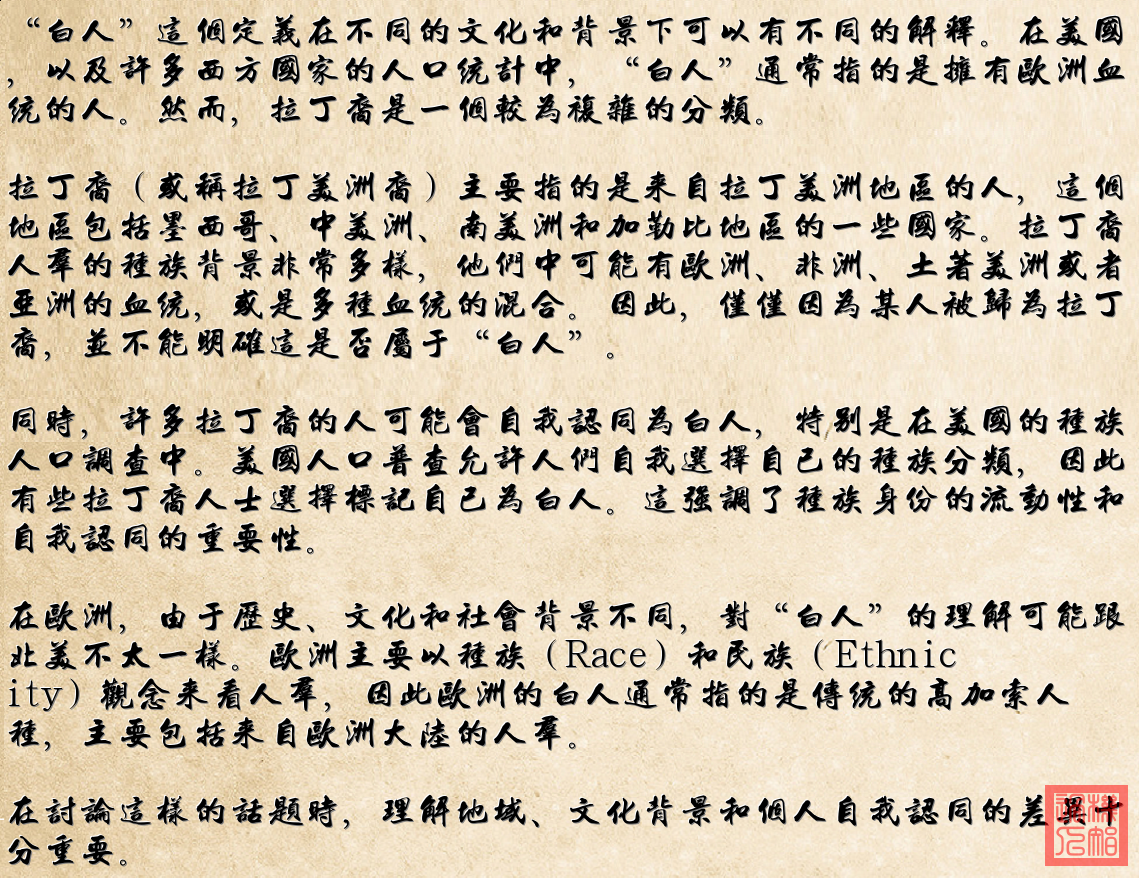 “白人”這個定義在不同的文化和背景下可以有不同的解釋。在美國
，以及許多西方國家的人口統計中，“白人”通常指的是擁有歐洲血
統的人。然而，拉丁裔是一個較為複雜的分類。
拉丁裔（或稱拉丁美洲裔）主要指的是來自拉丁美洲地區的人，這個
地區包括墨西哥、中美洲、南美洲和加勒比地區的一些國家。拉丁裔
人羣的種族背景非常多樣，他們中可能有歐洲、非洲、土著美洲或者
亞洲的血統，或是多種血統的混合。因此，僅僅因為某人被歸為拉丁
裔，並不能明確這是否屬于“白人”。
同時，許多拉丁裔的人可能會自我認同為白人，特別是在美國的種族
人口調查中。美國人口普查允許人們自我選擇自己的種族分類，因此
有些拉丁裔人士選擇標記自己為白人。這強調了種族身份的流動性和
自我認同的重要性。
在歐洲，由于歷史、文化和社會背景不同，對“白人”的理解可能跟
北美不太一樣。歐洲主要以種族（Race）和民族（Ethnic
ity）觀念來看人羣，因此歐洲的白人通常指的是傳統的高加索人
種，主要包括來自歐洲大陸的人羣。
在討論這樣的話題時，理解地域、文化背景和個人自我認同的差異十
分重要。